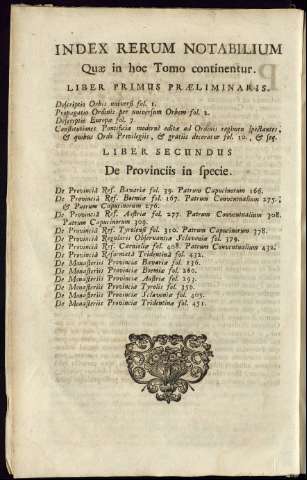 INDEX RERUM NOTABILIUM
Quæ in hoc Tomo continentur.
LIBER PRIMUS PRÆLIMINARIS.
Descriptio Orbis universi fol. 1.
Propagatio Ordinis per universum Orbem fol. 2.
Descriptio Europæ fol. 7.
Constitutiones Pontificiæ modernè editæ ad Ordinis regimen spectantes,
& quibus Ordo Privilegiis, & gratiis decoratur fol. 10. & seq.
LIBER SECUNDUS
De Provinciis in specie.
De Provinciâ Ref. Bavariæ fol. 39. Patrum Capucinorum 166.
De Provinciâ Ref. Boemiæ fol. 167. Patrum Conventualium 275.
& Patrum Capucinorum 276.
De Provinciâ Ref. Austriæ fol. 277. Patrum Conventualium 308.
Patrum Capucinorum 309.
De Provinciâ Ref. Tyrolensi fol. 310. Patrum Capucinorum 378.
De Provinciâ Regularis Observantiæ Sclavoniæ fol. 379.
De Provinciâ Ref. Carnioliæ fol. 408. Patrum Conventualium 432.
De Provinciâ Reformatâ Tridentinâ fol. 432.
De Monasteriis Provinciæ Bavariæ fol. 136.
De Monasteriis Provinciæ Boemiæ fol. 260.
De Monasteriis Provinciæ Austriæ fol. 293.
De Monasteriis Provinciæ Tyrolis fol. 350.
De Monasteriis Provinciæ Sclavoniæ fol. 405.
De Monasteriis Provinciæ Tridentinæ fol. 451.